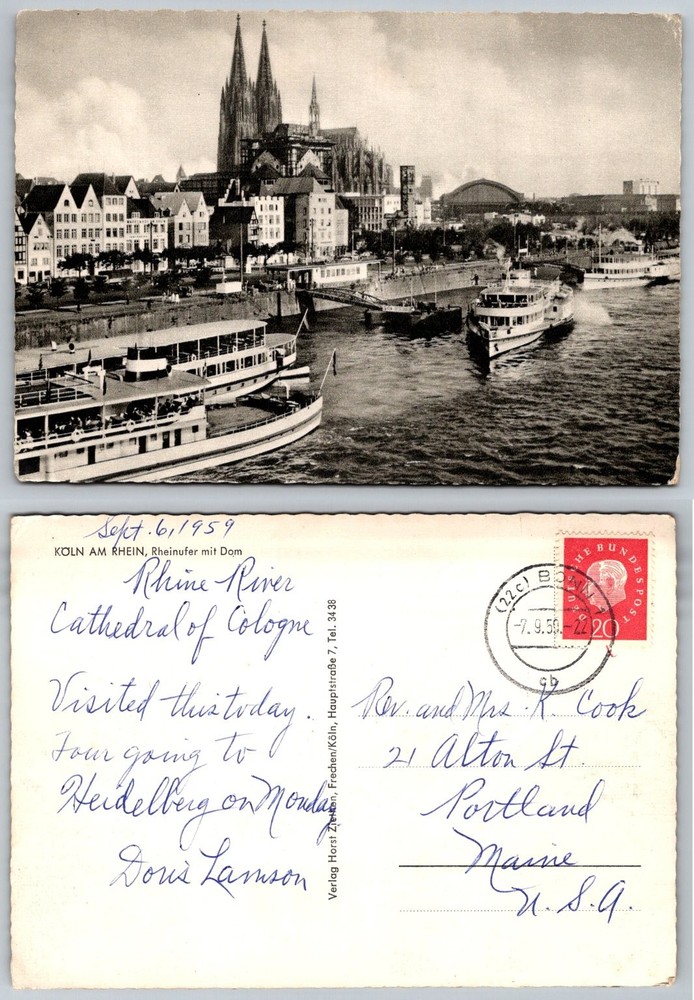 Sept. 6, 1959
KÖLN AM RHEIN, Rheinufer mit Dom
Rhine River
Cathedral of Cologne
Visited this today.
Tour going to
Heidelberg on Monday
Doris Lamson
Verlag Horst Ziethen, Frechen/Köln, Hauptstraße 7, Tel. 3438
DEUTSCHE BUNDESPOST
20
(22c) BONN 1
-7.9.59.-22
gb
Rev. and Mrs. K. Cook
21 Alton St.
Portland
Maine
U. S. A.